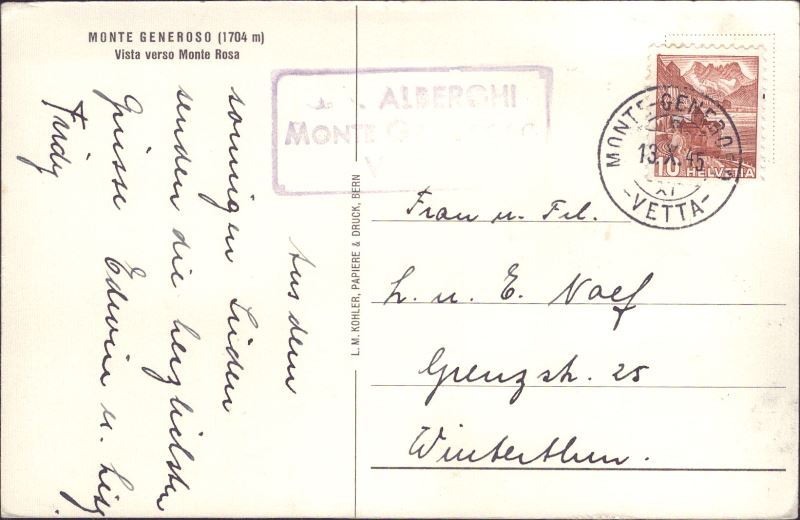 MONTE GENEROSO (1704 m)
Vista verso Monte Rosa
Aus dem
sonnigen Süden
senden die herzlichsten
Grüsse Edwin u. Lisy
Trudy
ALBERGHI
MONTE GENEROSO
V
L. M. KOHLER, PAPIERE & DRUCK, BERN
MONTE GENEROSO
13.X.45
XI
-VETTA-
10 HELVETIA
Frau u. Frl.
L. u. E. Naef
Grenzstr. 25
Winterthur.